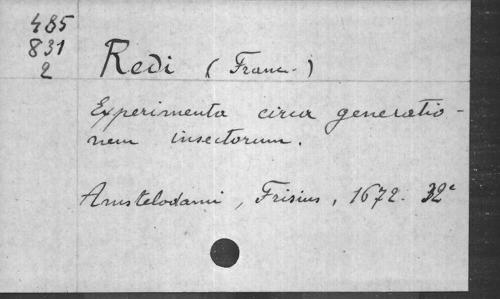 485
831
2
Redi (Franc.)
Experimenta circa generatio-
nem insectorum.
Amstelodami, Frisius, 1672. 32°